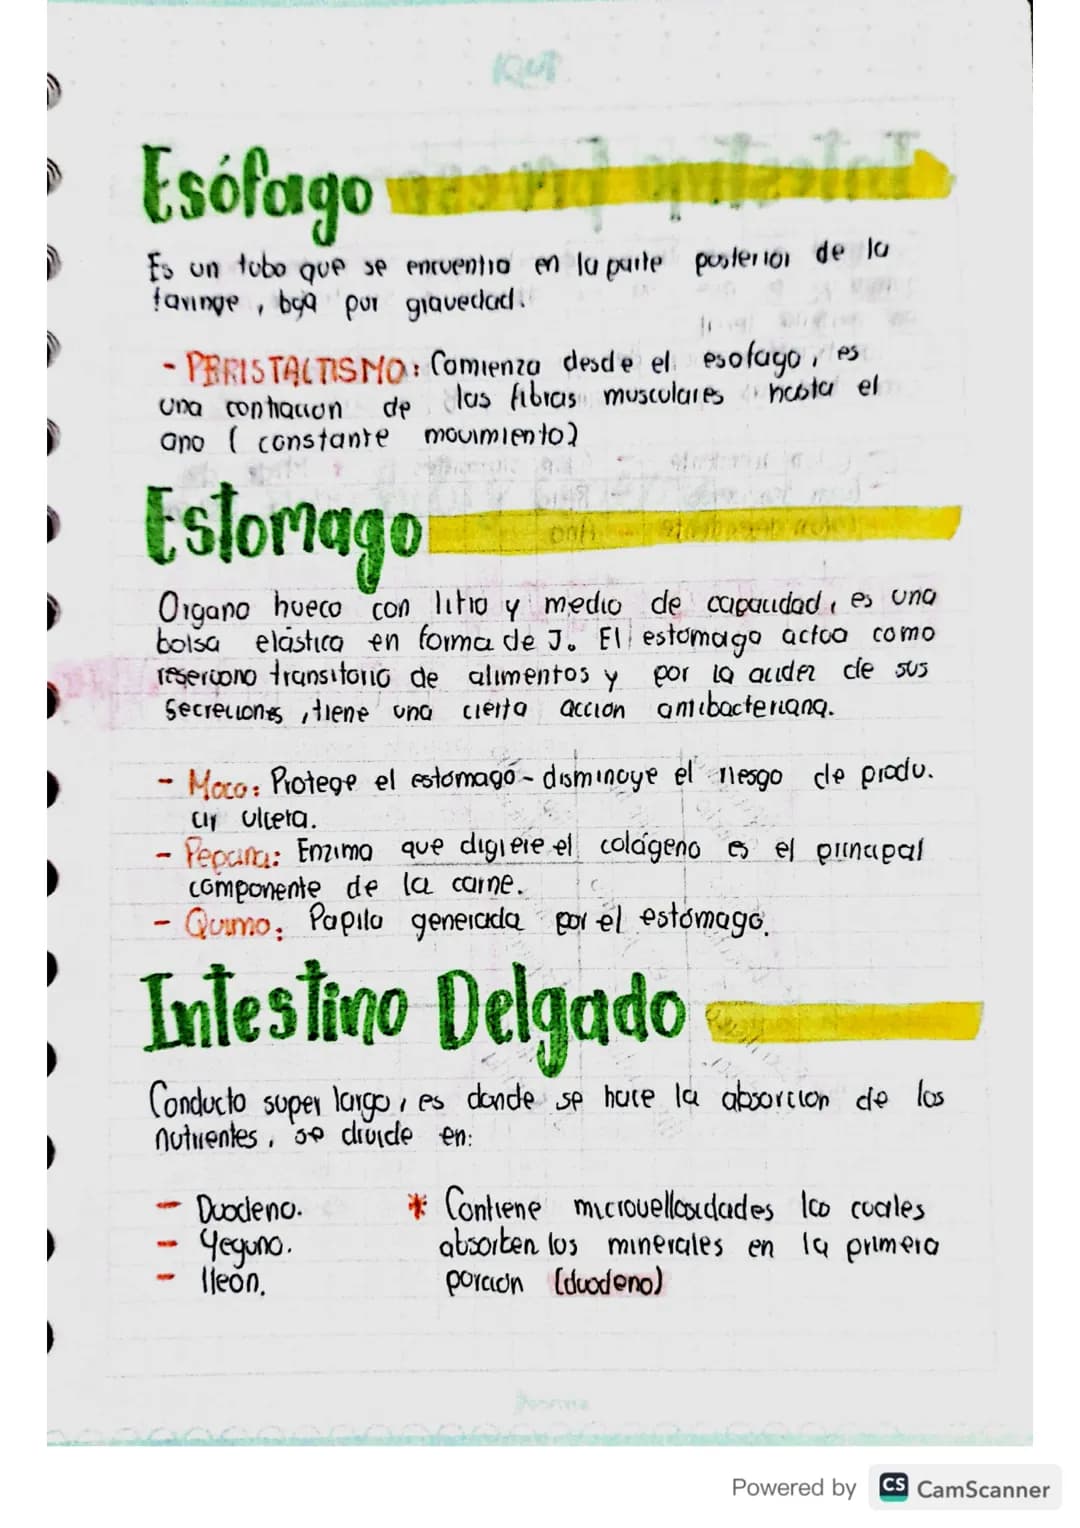 Esófago
Es un tubo que se encuentra en la parte posterior de la
faringe, baja por gravedad.
- PERISTALTISMO: Comienza desde el esofago, es
una contracion de las fibras musculares hasta el
ano ( constante movimiento)
Estomago
Organo hueco con litro y medio de capacidad, es una
bolsa elástica en forma de J. El estomago actua como
reservorio transitorio de alimentos y por la acidez de sus
secreciones, tiene una cierta acción antibacteriana.
- Moco: Protege el estomago - disminuye el riesgo de produ.
cir ulcera.
- Pepcina: Enzima que digiere el colágeno es el principal
componente de la carne.
- Quimo: Papilla generada por el estómago.
Intestino Delgado
Conducto super largo, es donde se hace la absorcion de los
nutrientes, se divide en:
- Duodeno.
- Yeguno.
- Ileon.
* Contiene microvellosidades los cuales
absorben los minerales en la primera
porción (duodeno)
Powered by CS CamScanner